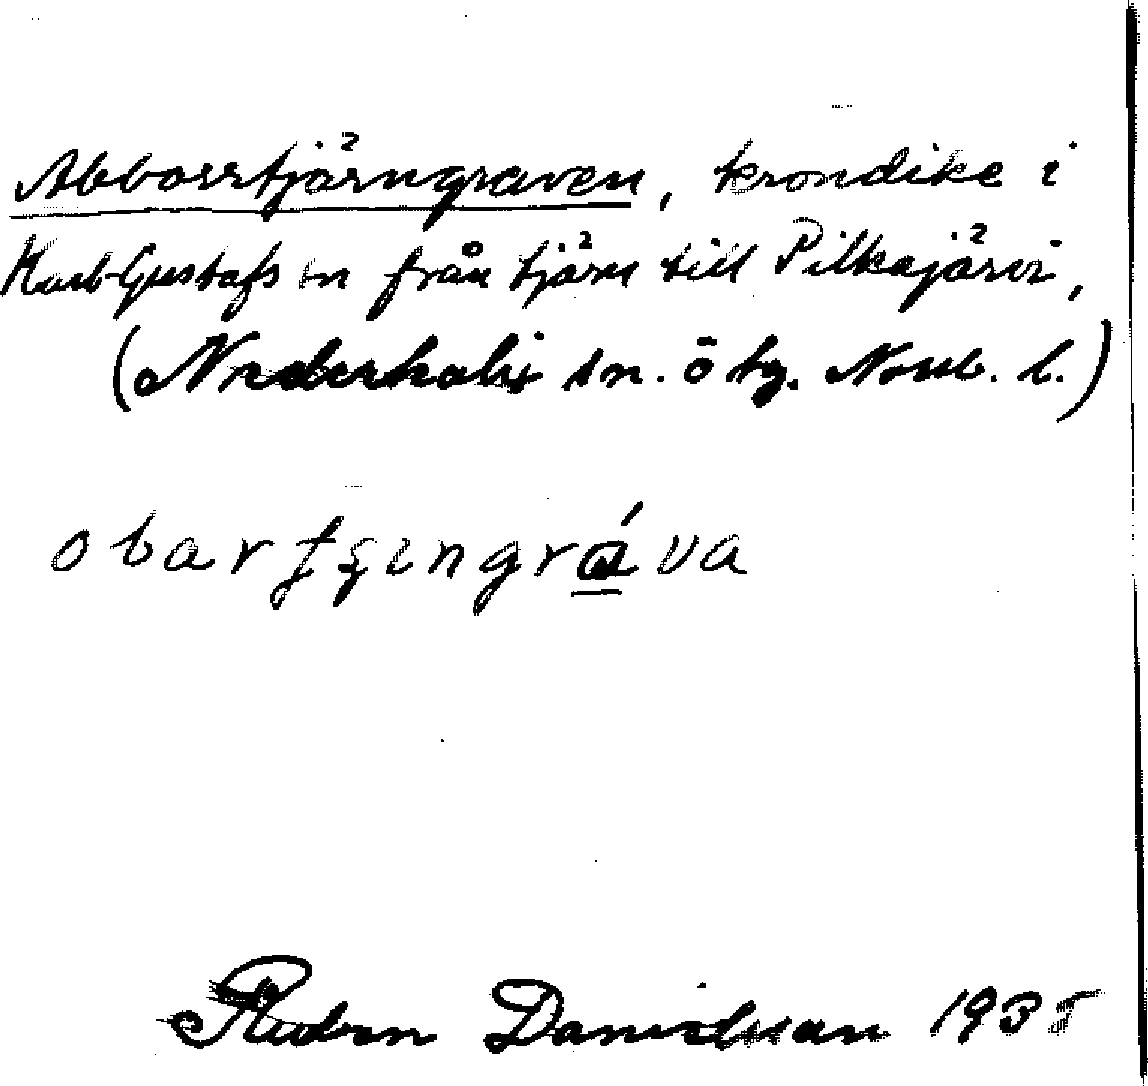 Abborrtjärngraven, krondike i
Karl-Gustafs sn från tjärn till Pilkajärvi,
(Nederkalix sn. ö tg. Norrb. l.)
obarʈʂengráva
Ruben Danielsson 1935